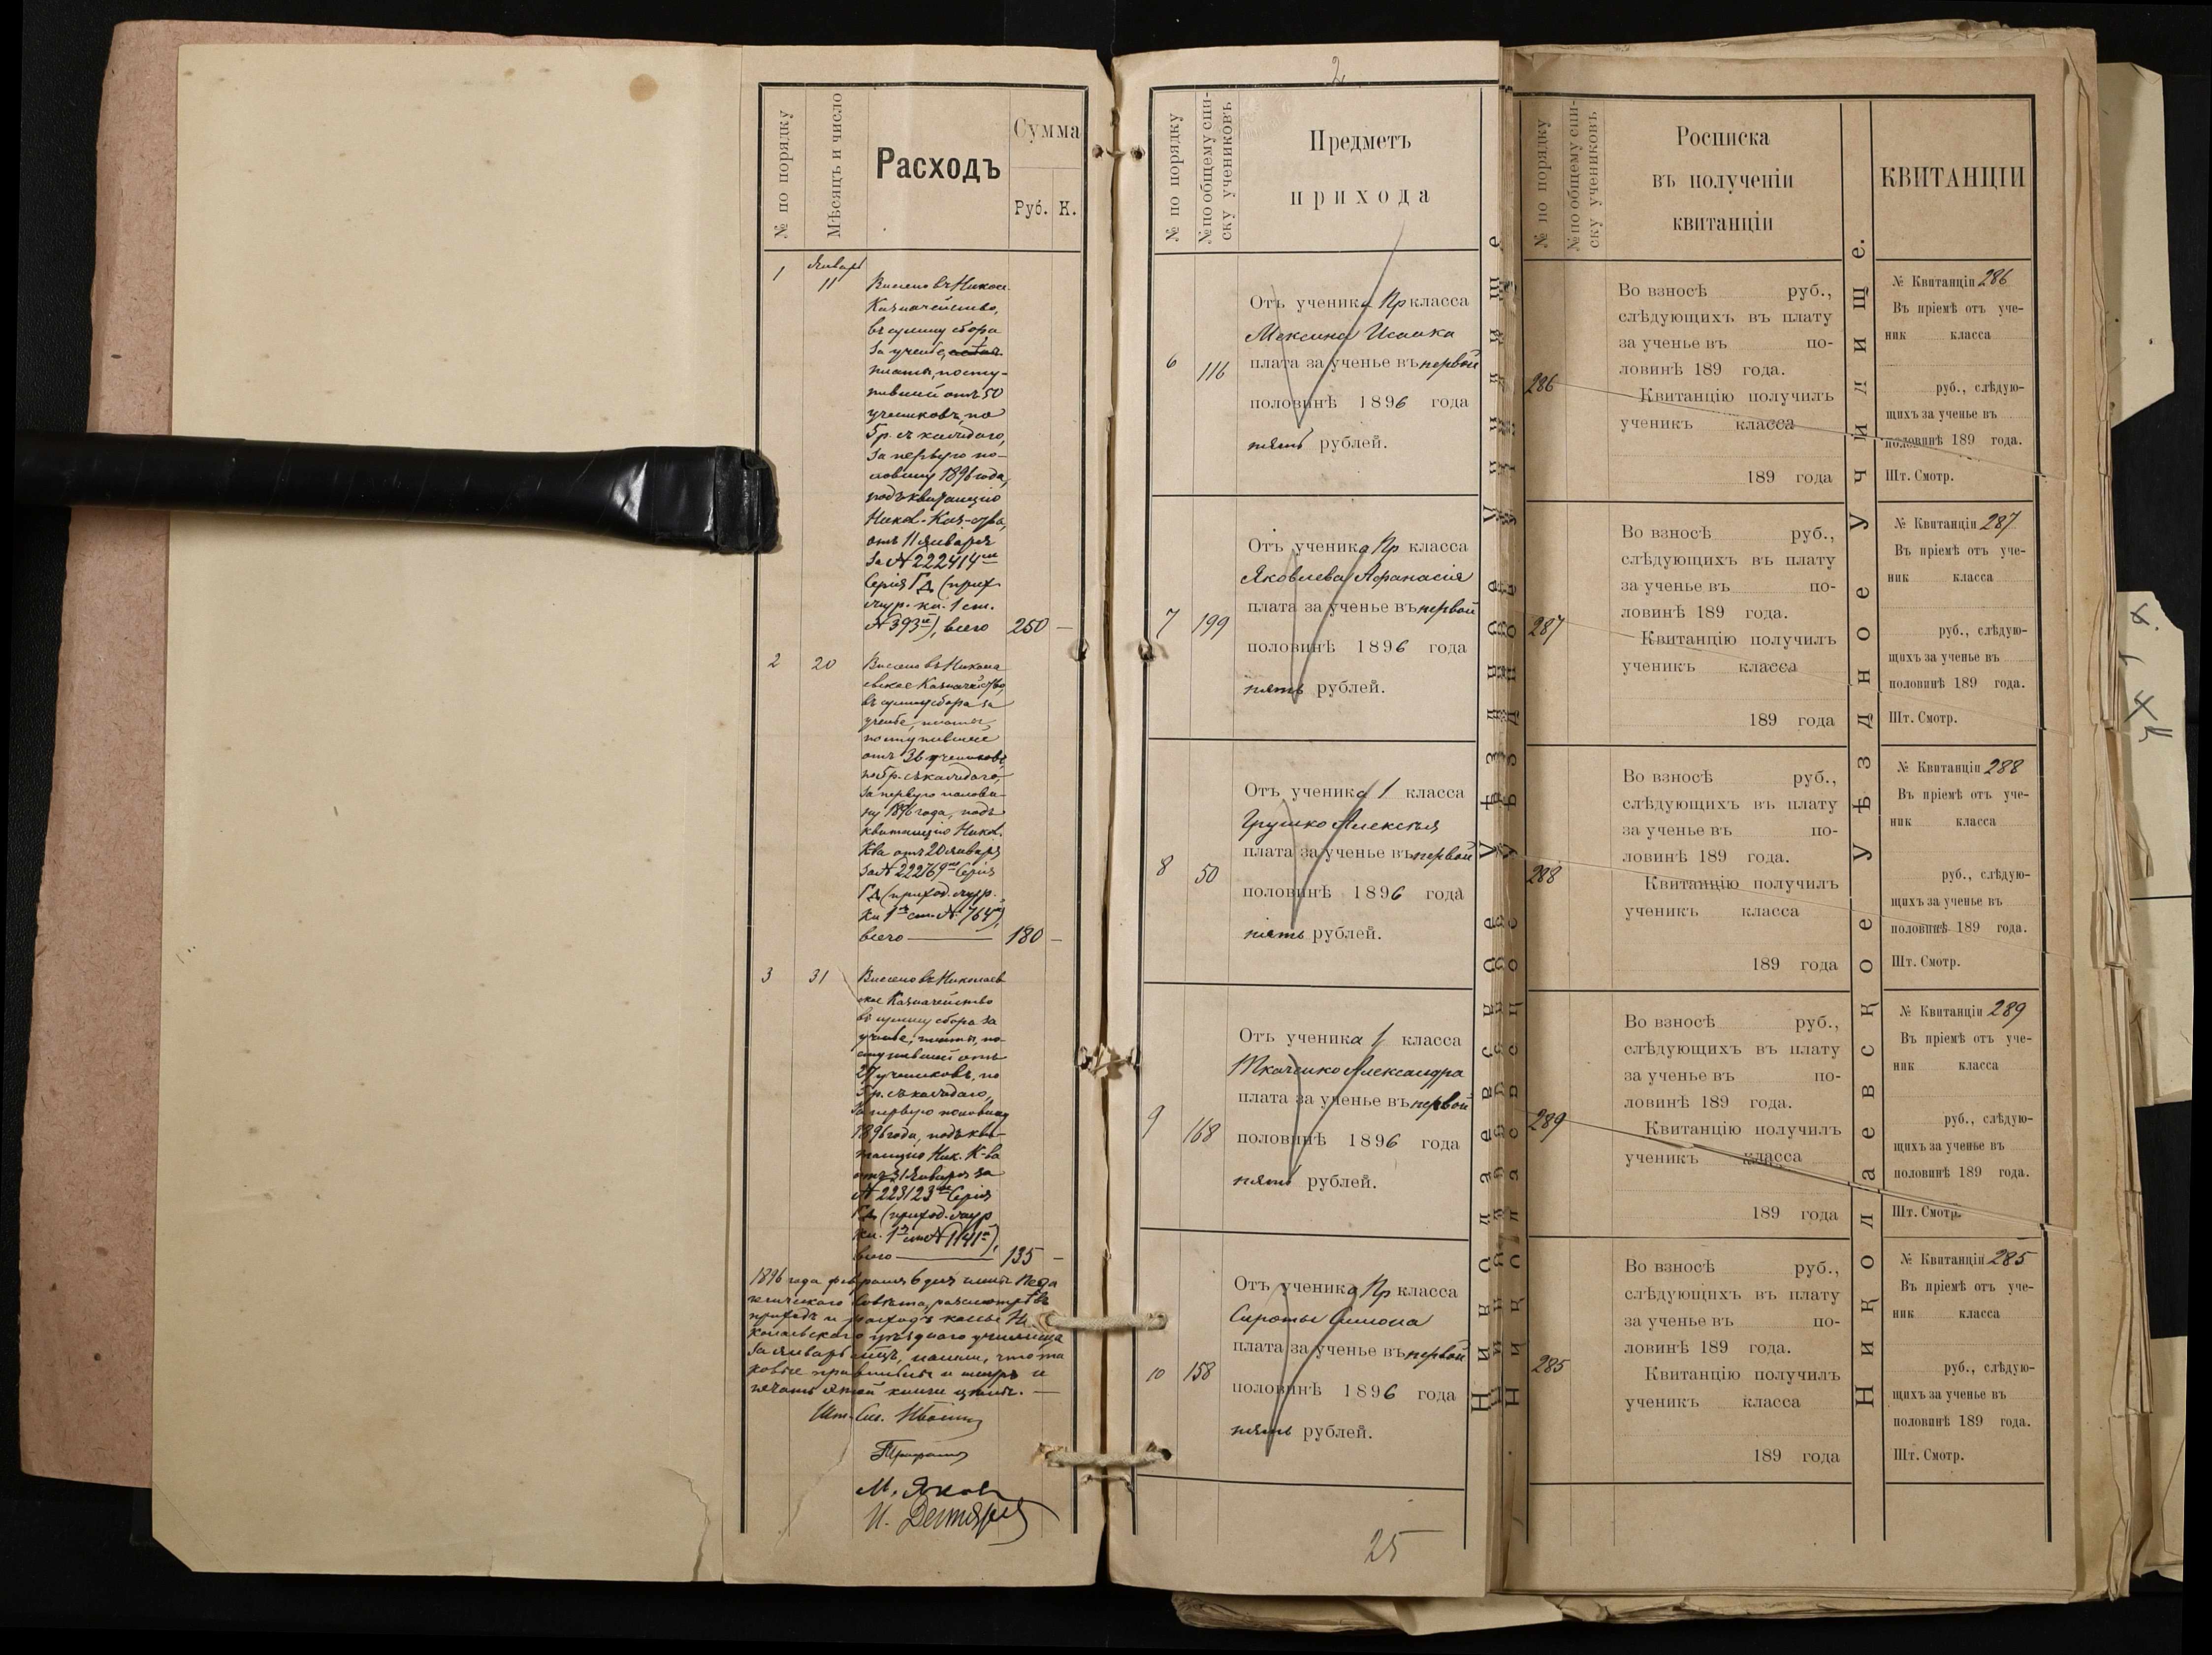 № по порядку
Мѣсяцъ и число
Расходъ
Сумма
Руб. К.
Январь
1 11
Внесено въ Никол.
Казначейство,
въ сумму сбора
за ученіе,
платы, посту-
пившей отъ 50
учениковъ, по
5 р. съ каждаго,
за первую по-
ловину 1896 года,
подъ квитанцію
Никол. Каз-ства,
отъ 11 января
за № 222414
Серія (прих.
жур. кн. 1 ст.
№ 393), всего 250 —
2 20
Внесено въ Никола
евское Казначейство
въ сумму сбора за
ученіе, платы,
поступившей
отъ 36 учениковъ,
по 5 р. съ каждаго,
за первую полови-
ну 1896 года, подъ
квитанцію Никол.
К-ва отъ 20 января
за № 222769 Серія
(приход. журн.
кн 1 ст. № 764)
всего 180 —
3 31
Внесено въ Николаев
ское Казначейство
въ сумму сбора за
ученіе, платы, по-
ступившей отъ
27 учениковъ, по
5 р. съ каждаго,
за первую половину
1896 года, подъ кви-
танцію Ник. К-ва
отъ 31 января за
№ 223123 Серія
(приход. жур
кн. 1 ст № 1141),
всего 135 —
1896 года февраля 6 дня члены Педа
гогическаго Совѣта, разсмотрѣвъ
приходъ и расходъ кассы Ни
колаевскаго уѣзднаго училища
за январь мѣц., нашли, что та
ковые правильны и шнуръ и
печать этой книги цѣлы. —
Шт. См.
М. Яков
И. Дегтярев
2
№ по порядку
№ по общему спи-
ску учениковъ
Предметъ
прихода
6 116
Отъ ученика Пр класса
Мексина Исаака
плата за ученье въ первой
половинѣ 1896 года
пять рублей.
7 199
Отъ ученика Пр класса
Яковлева Афанасія
плата за ученье въ первой
половинѣ 1896 года
пять рублей.
8 50
Отъ ученика 1 класса
Грушко Алексѣя
плата за ученье въ первой
половинѣ 1896 года
пять рублей.
9 168
Отъ ученика 1 класса
Ткаченко Александра
плата за ученье въ первой
половинѣ 1896 года
пять рублей.
10 158
Отъ ученика Пр класса
Сироты Симона
плата за ученье въ первой
половинѣ 1896 года
пять рублей.
25
№ по порядку
№ по общему спи-
ску учениковъ
Росписка
въ полученіи
квитанціи
Николаевское Уѣздное Училище.
КВИТАНЦІИ
286
Во взносѣ руб.,
слѣдующихъ въ плату
за ученье въ по-
ловинѣ 189 года.
Квитанцію получилъ
ученикъ класса
189 года
№ Квитанціи 286
Въ пріемѣ отъ уче-
ник класса
руб., слѣдую-
щихъ за ученье въ
половинѣ 189 года.
Шт. Смотр.
287
Во взносѣ руб.,
слѣдующихъ въ плату
за ученье въ по-
ловинѣ 189 года.
Квитанцію получилъ
ученикъ класса
189 года
№ Квитанціи 287
Въ пріемѣ отъ уче-
ник класса
руб., слѣдую-
щихъ за ученье въ
половинѣ 189 года.
Шт. Смотр.
288
Во взносѣ руб.,
слѣдующихъ въ плату
за ученье въ по-
ловинѣ 189 года.
Квитанцію получилъ
ученикъ класса
189 года
№ Квитанціи 288
Въ пріемѣ отъ уче-
ник класса
руб., слѣдую-
щихъ за ученье въ
половинѣ 189 года.
Шт. Смотр.
289
Во взносѣ руб.,
слѣдующихъ въ плату
за ученье въ по-
ловинѣ 189 года.
Квитанцію получилъ
ученикъ класса
189 года
№ Квитанціи 289
Въ пріемѣ отъ уче-
ник класса
руб., слѣдую-
щихъ за ученье въ
половинѣ 189 года.
Шт. Смотр.
285
Во взносѣ руб.,
слѣдующихъ въ плату
за ученье въ по-
ловинѣ 189 года.
Квитанцію получилъ
ученикъ класса
189 года
№ Квитанціи 285
Въ пріемѣ отъ уче-
ник класса
руб., слѣдую-
щихъ за ученье въ
половинѣ 189 года.
Шт. Смотр.